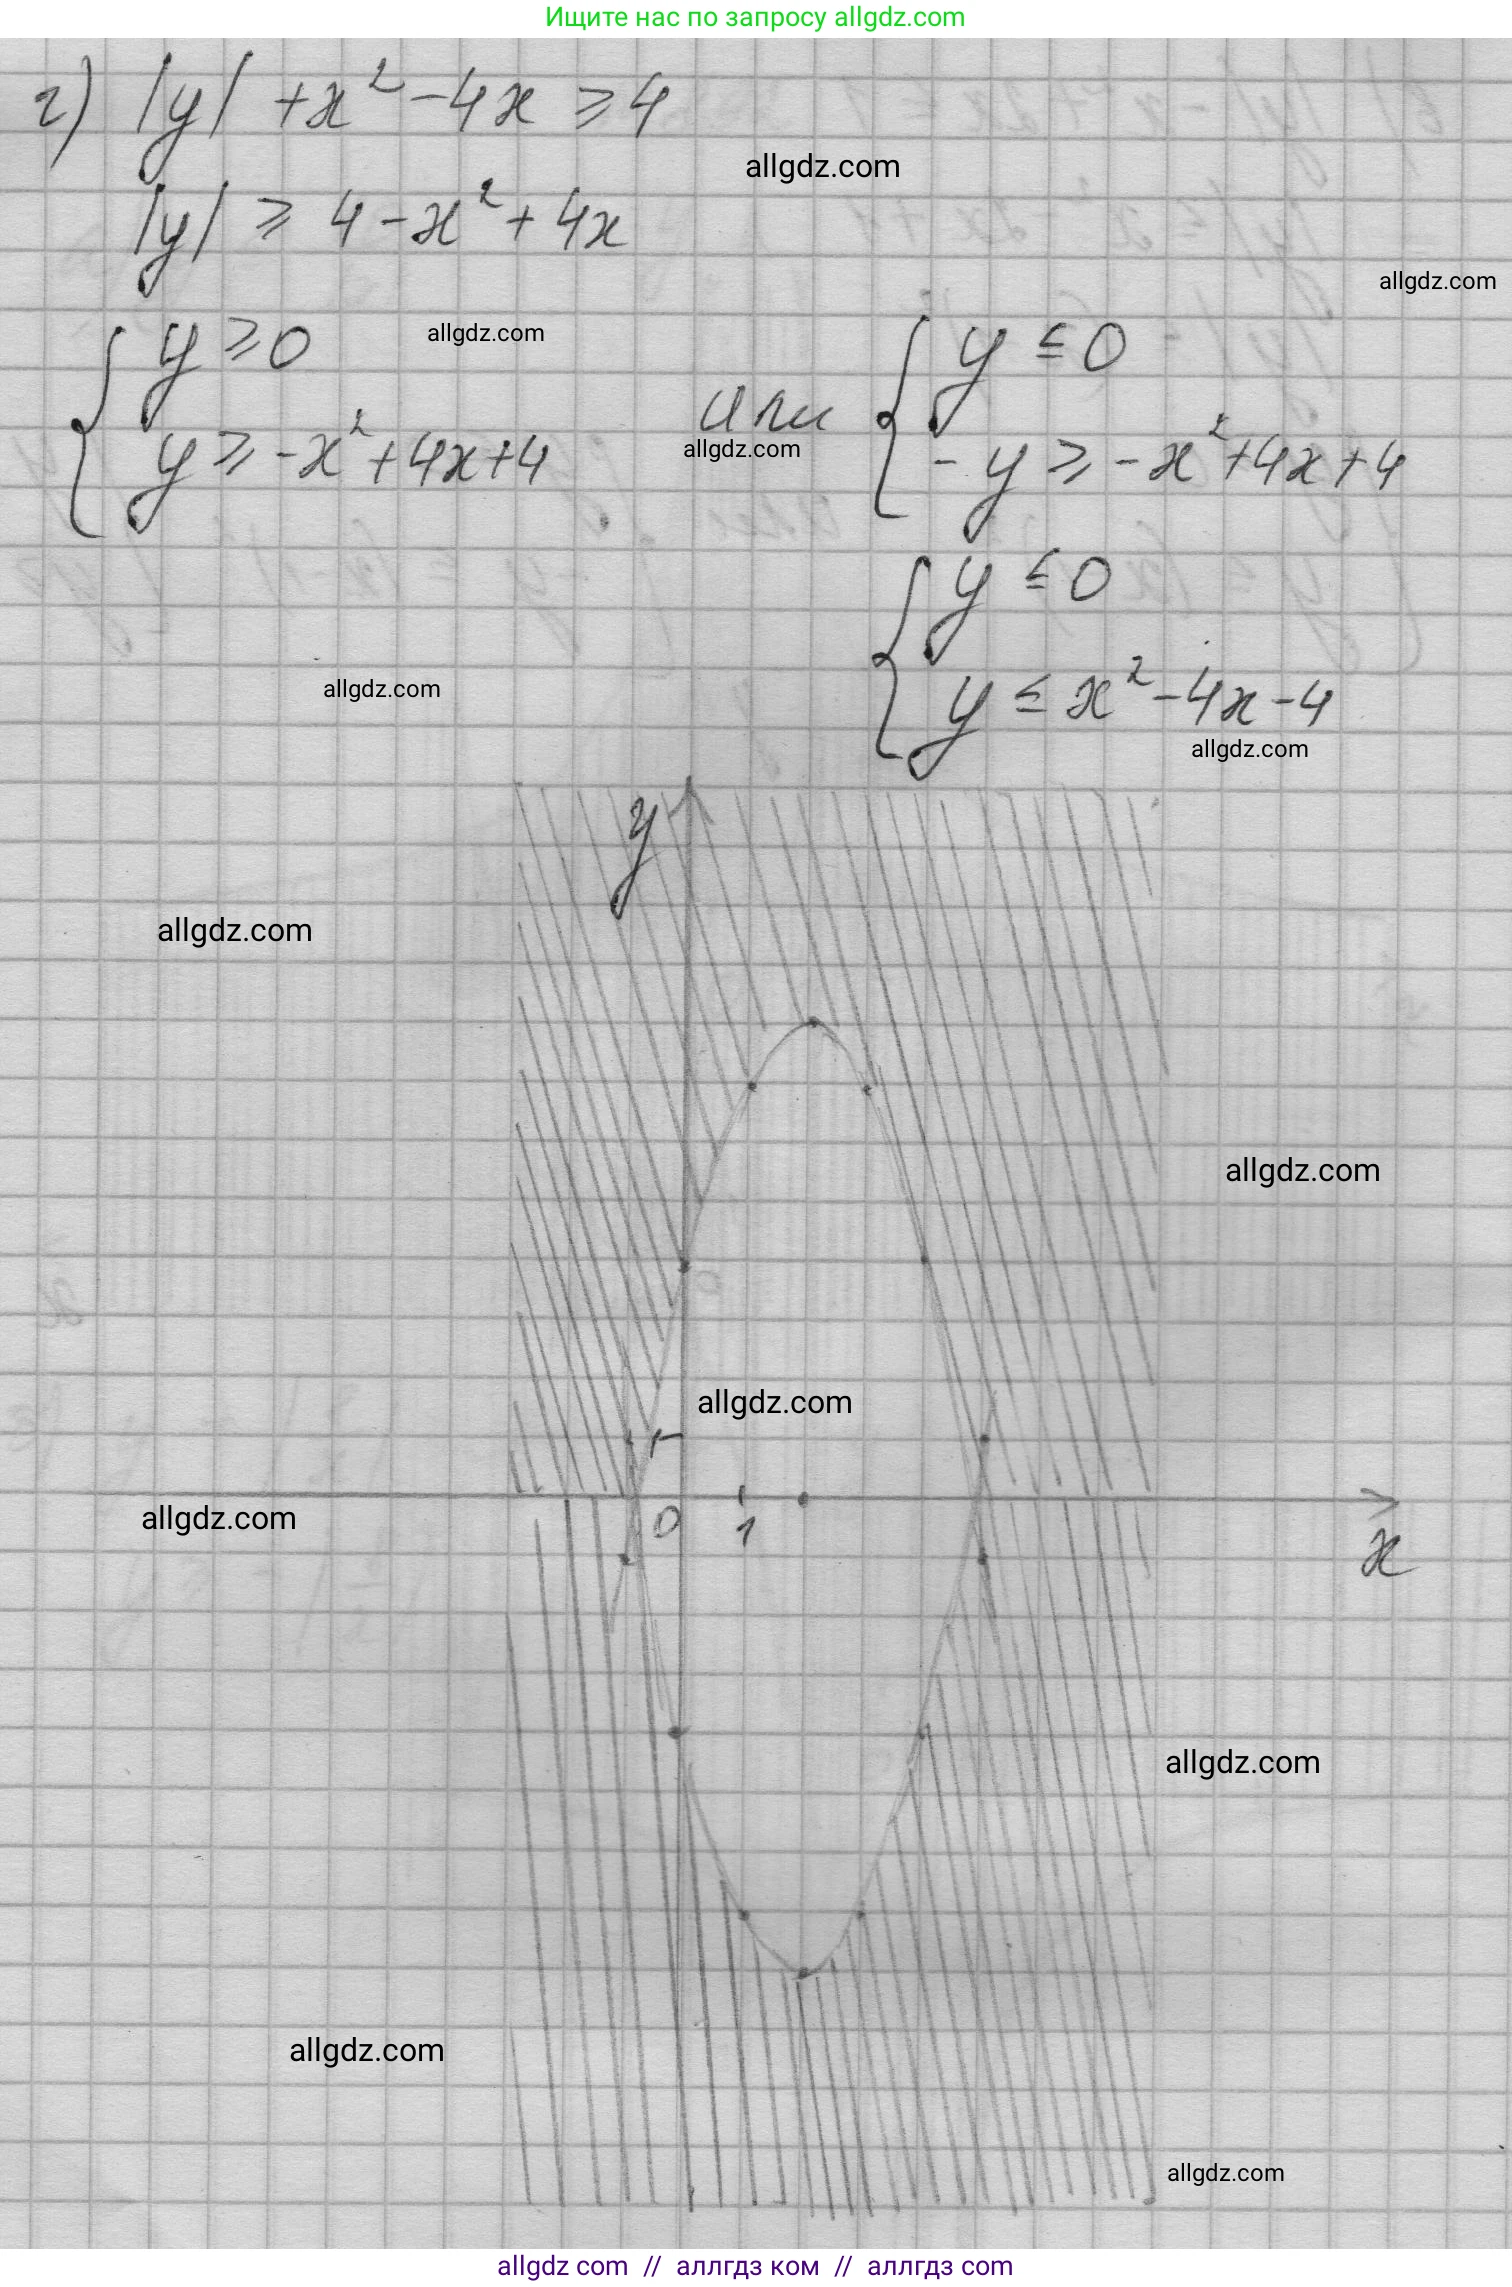 Ищите нас по запросу allgdz.com
г) |y| + x² - 4x ⩾ 4
allgdz.com
|y| ⩾ 4 - x² + 4x
allgdz.com
{ y ⩾ 0
allgdz.com
y ⩾ -x² + 4x + 4
или
allgdz.com
{ y ≤ 0
-y ⩾ -x² + 4x + 4
{ y ≤ 0
y ≤ x² - 4x - 4
allgdz.com
allgdz.com
y
allgdz.com
allgdz.com
allgdz.com
1
allgdz.com
0
1
x
allgdz.com
allgdz.com
allgdz.com
allgdz com // аллгдз ком // аллгдз com